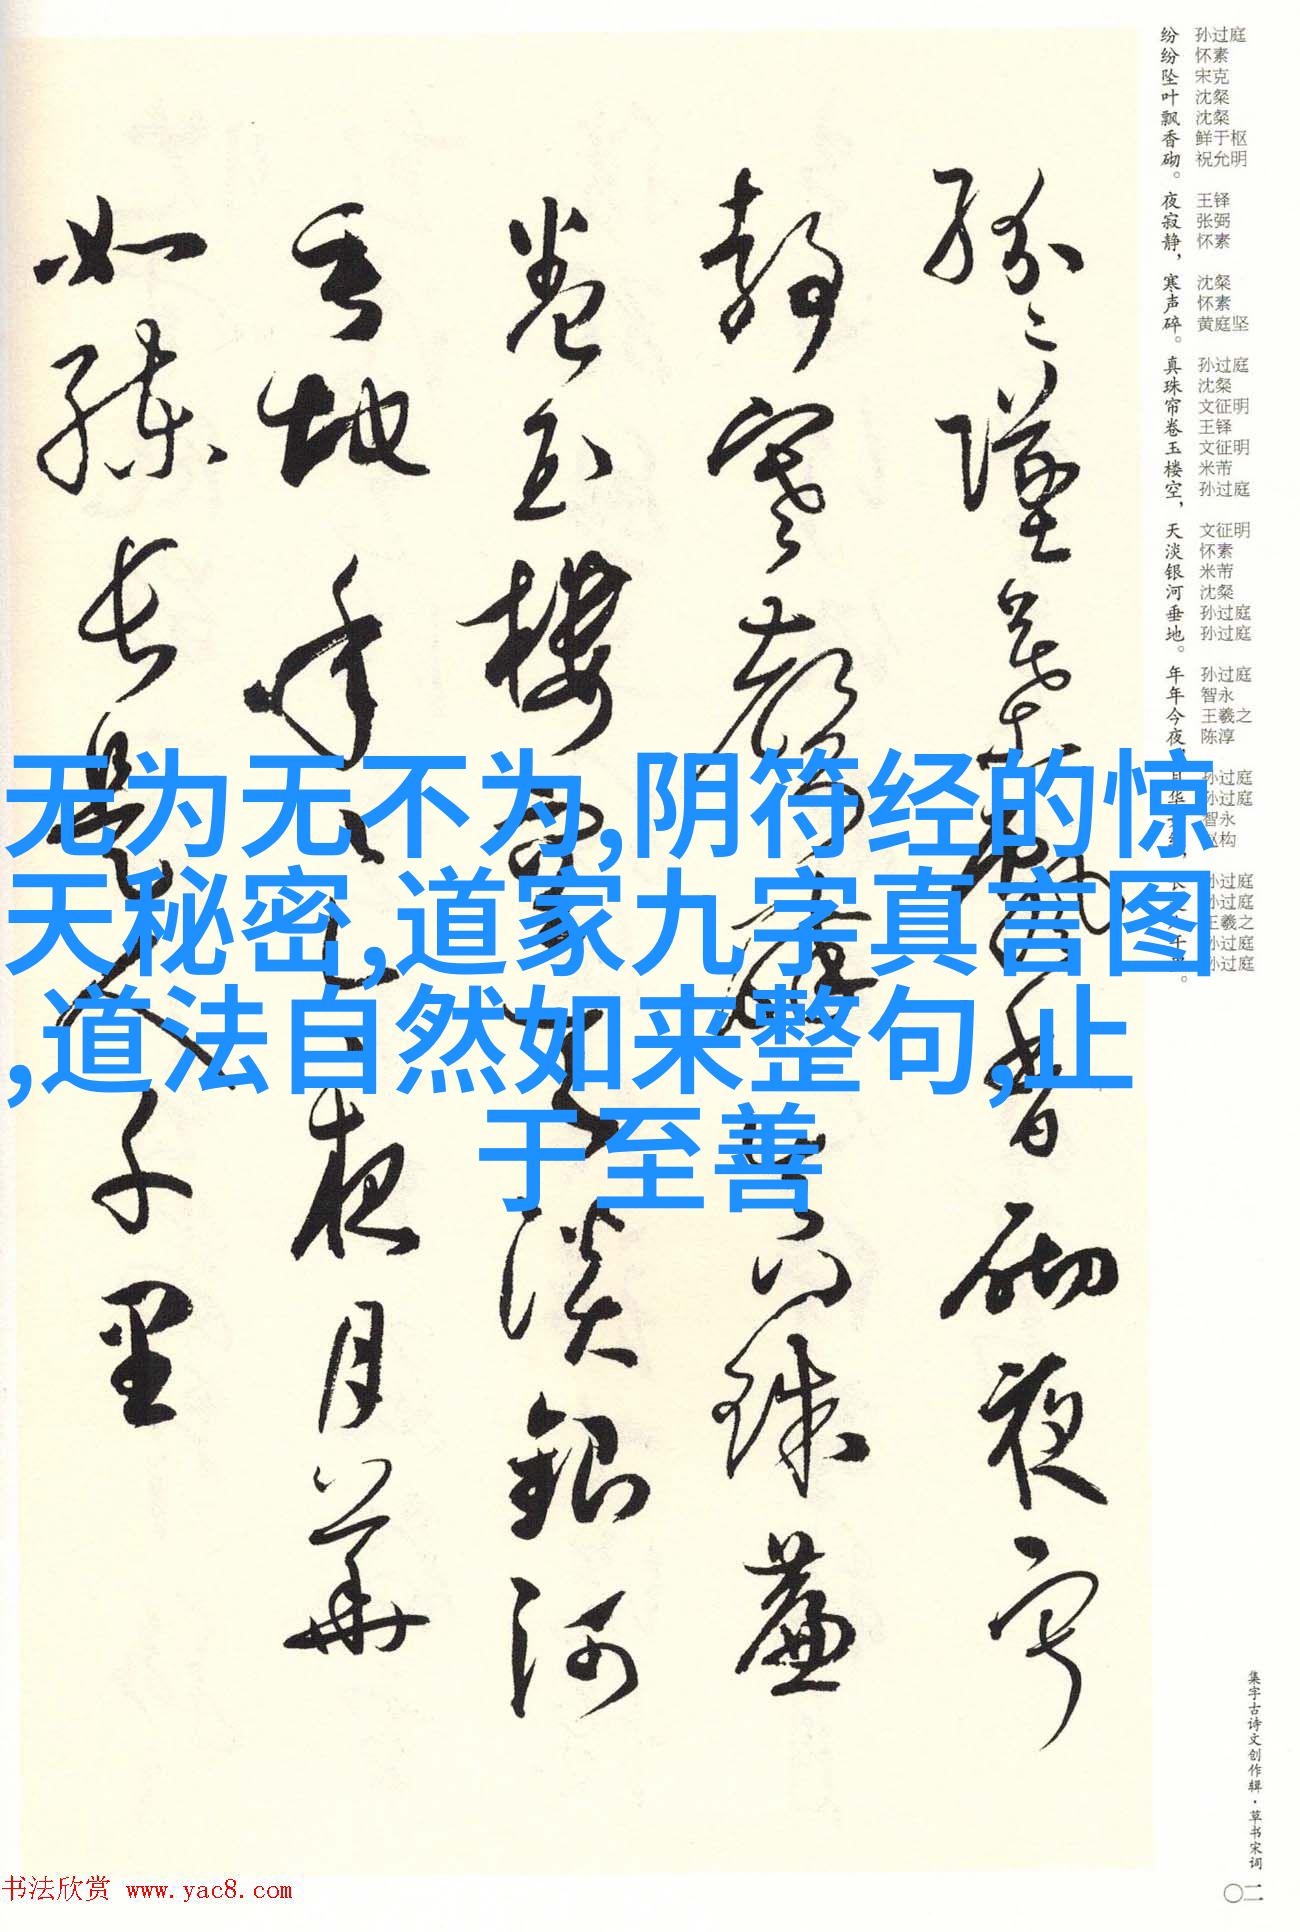 纷纷坠叶飘香砌。夜寂静，寒声碎。真珠帘卷玉楼空，天淡银河垂地。年年今夜
孙过庭 怀素 宋克 沈粲 沈粲 鲜于枢 祝允明 王铎 张弼 怀素 沈粲 怀素 黄庭坚 孙过庭 沈粲 文征明 王铎 文征明 米芾 孙过庭 文征明 怀素 米芾 沈粲 孙过庭 孙过庭 孙过庭 智永 王羲之 陈淳 孙过庭 孙过庭 智永 赵构 孙过庭 孙过庭 王羲之 孙过庭 孙过庭
纷纷坠叶飘香砌夜寂
静寒声碎真珠帘
卷玉楼空天淡银河
垂地年年今夜月华
如练长是人千里
无为无不为,阴符经的惊
天秘密,道家九字真言图
,道法自然如来整句,止
于至善
集字古诗文创作辑·草书宋词
〇二
书法欣赏 www.yac8.com